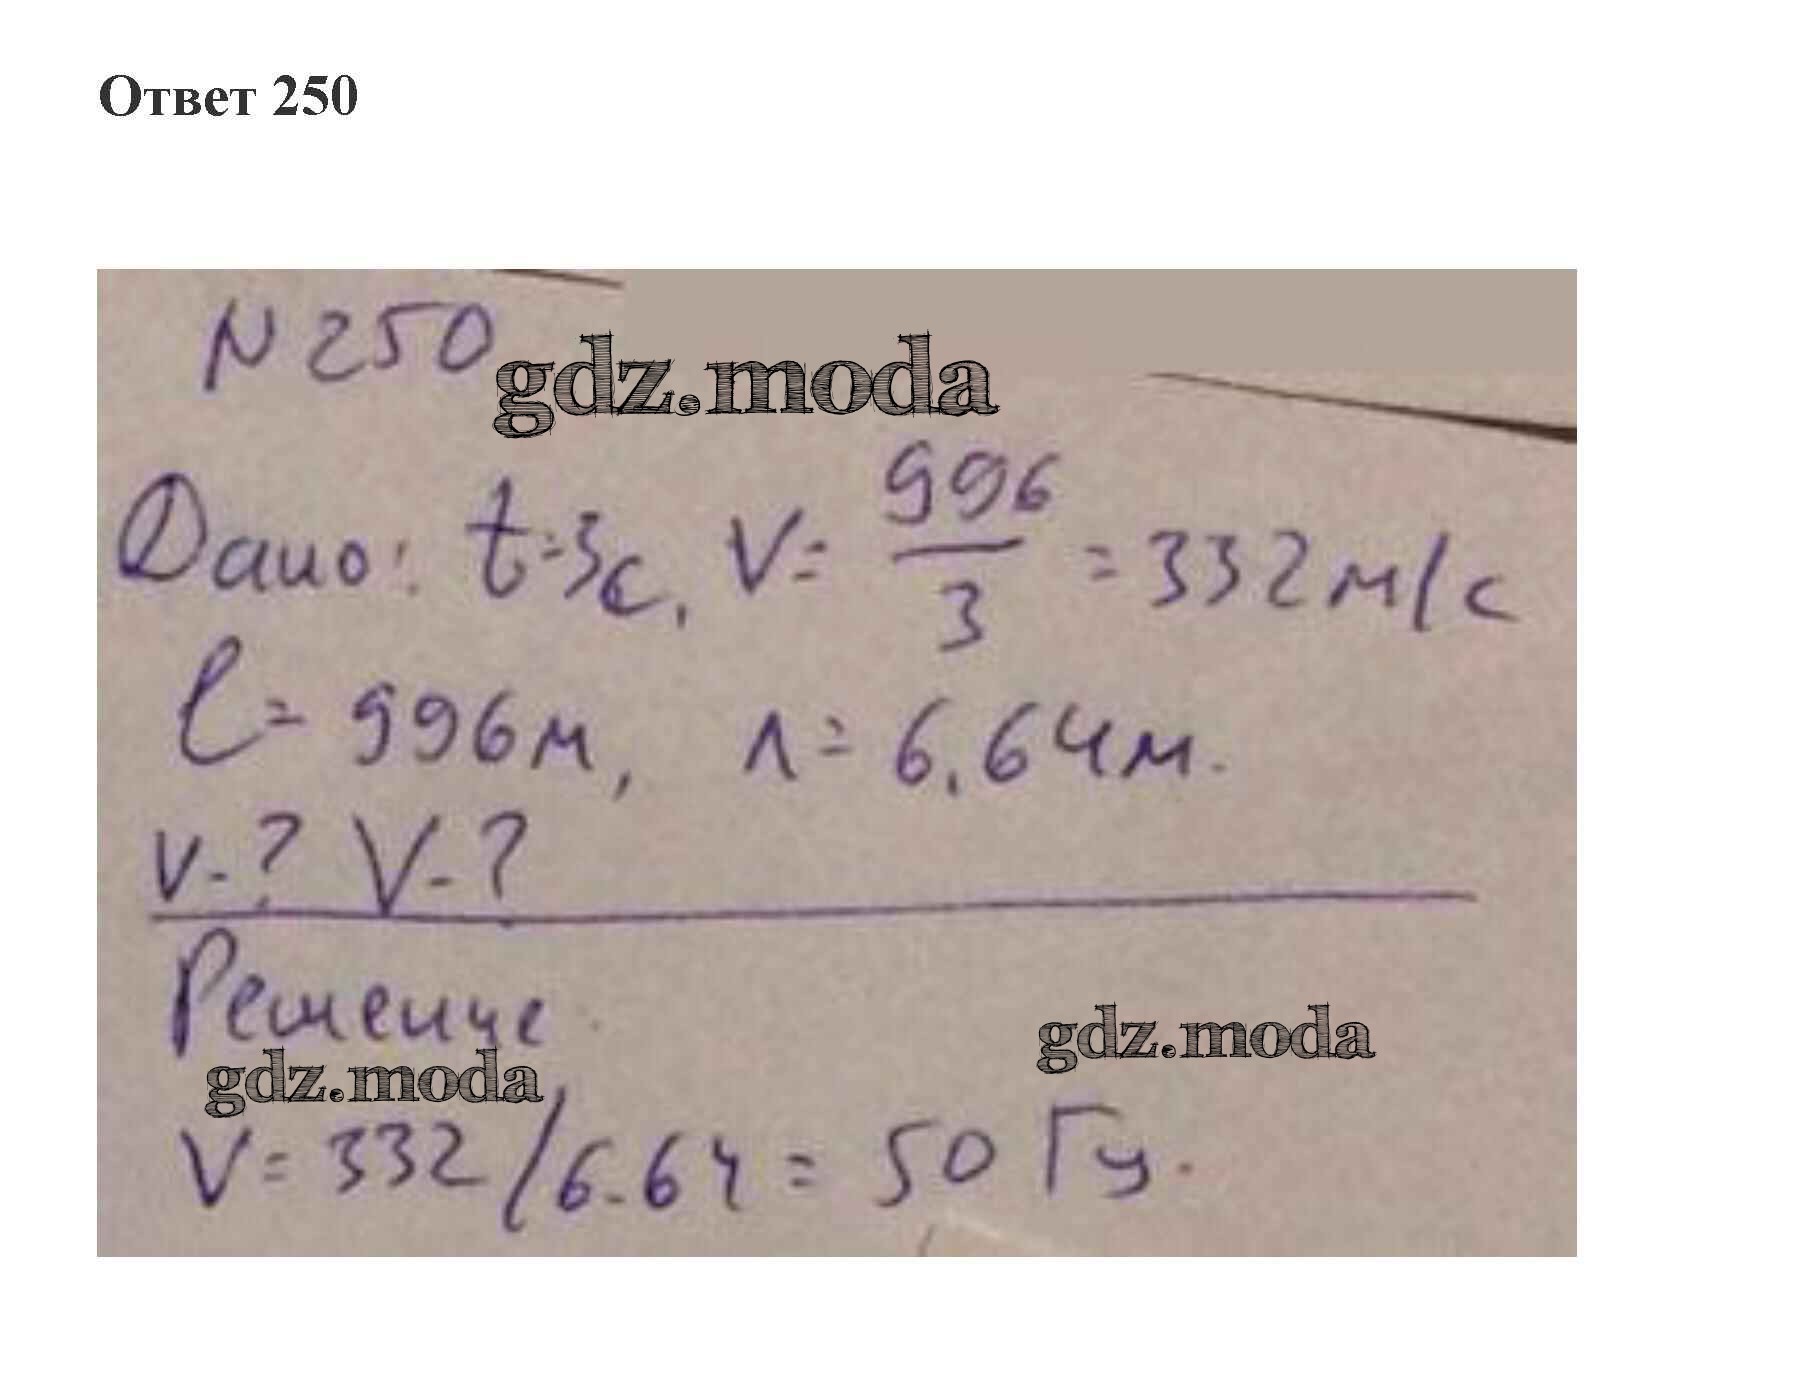 Ответ 250
N 250
gdz.moda
Дано: t=3с, V= 996/3 = 332м/с
l= 996м, λ= 6,64м.
ν-? V-?
Решение
gdz.moda
gdz.moda
V= 332/6.64 = 50 Гц.